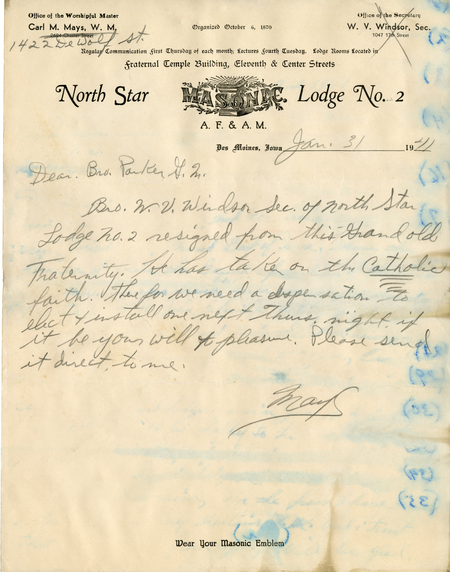 Office of the Worshipful Master
Carl M. Mays, W. M.
1422 De Wolf St.
Organized October 6, 1870
Office of the Secretary
W. V. Windsor, Sec.
1047 17th Street
Regular Communication First Thursday of each month; Lectures Fourth Tuesday. Lodge Rooms Located in
Fraternal Temple Building, Eleventh & Center Streets
North Star MASONIC. Lodge No. 2
A. F. & A. M.
Des Moines, Iowa Jan. 31 1941
Dear Bro. Parker
Bro. W. V. Windsor Sec. of North Star
Lodge No. 2 resigned from this Grand old
Fraternity. He has take on the Catholic
faith. There for we need a dispensation to
elect & install one next Thurs. night, if
it be your will & pleasure. Please send
it direct to me.
Mays
(35)
Wear Your Masonic Emblem